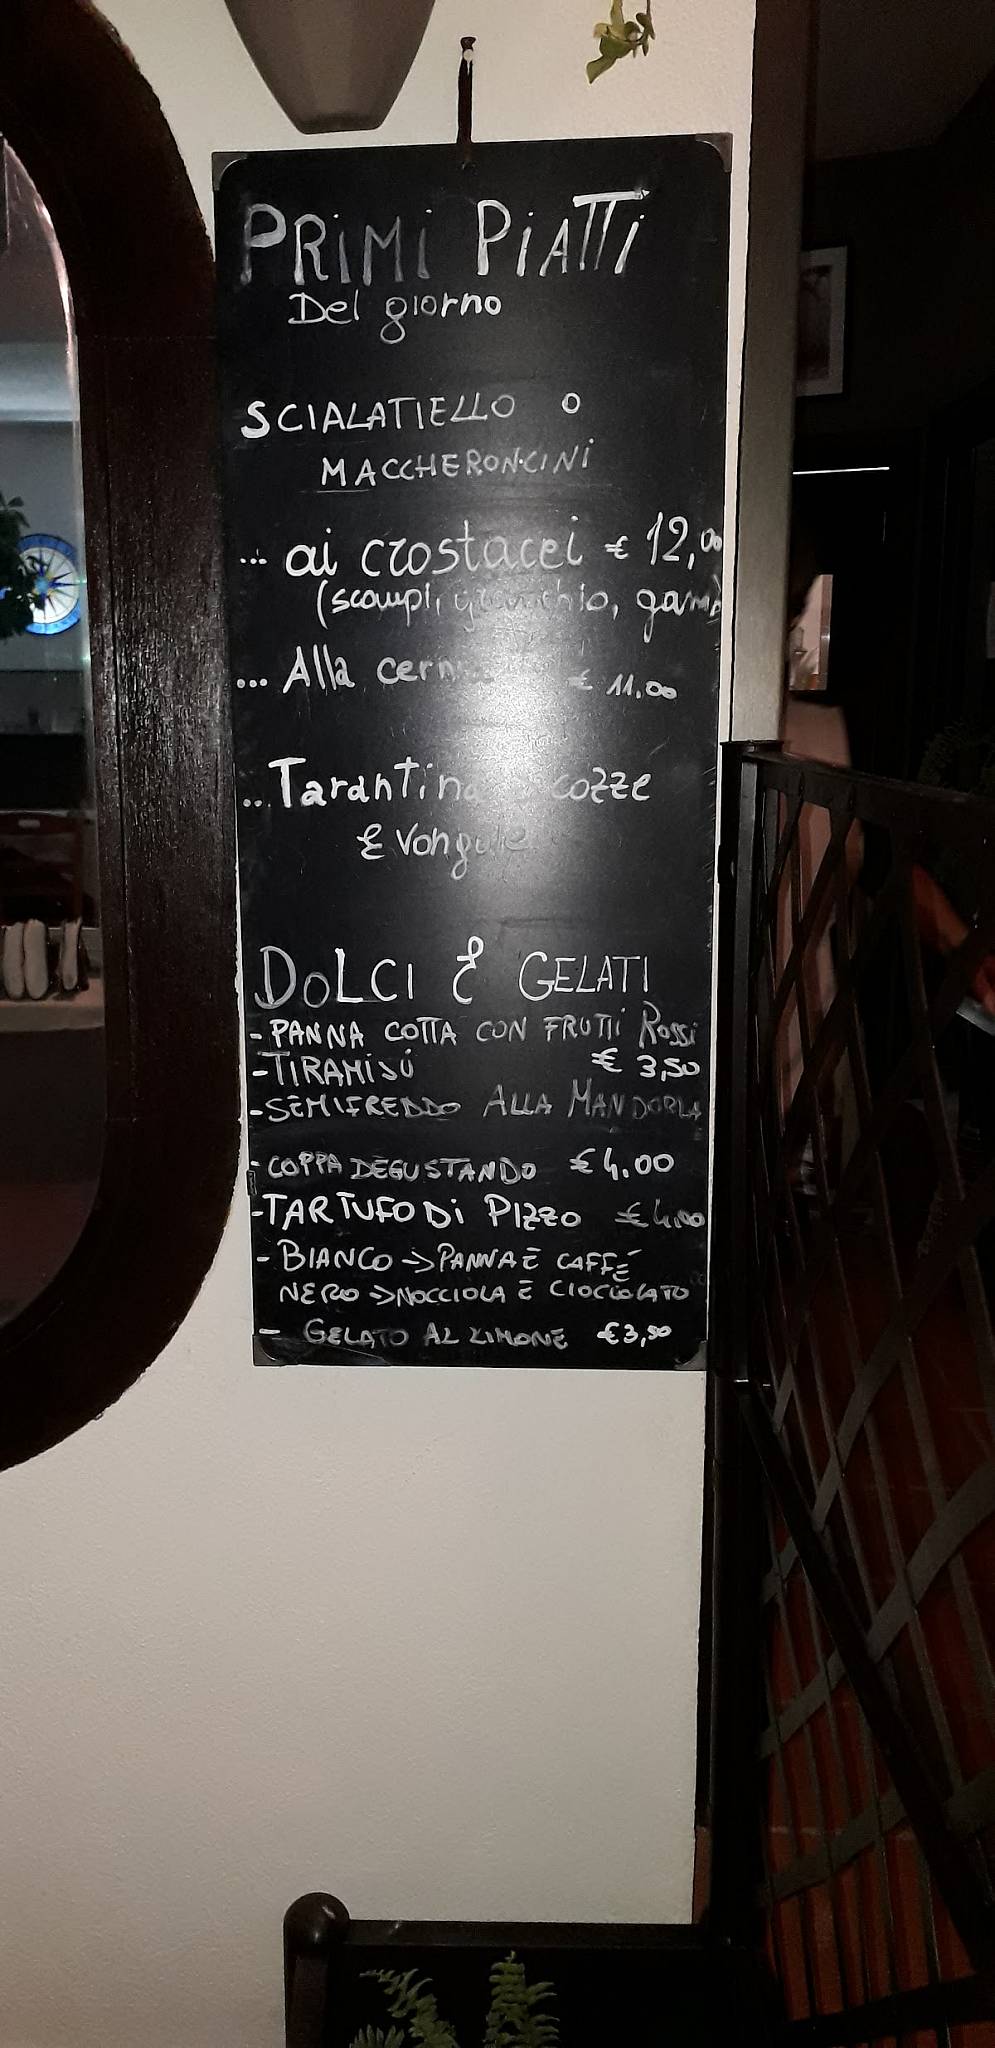 PRiMi PiATTi
Del giorno
SCIALATIELLO O
MACCHERONCINI
... ai crostacei € 12,00
(scampi, granchio, gamb
... Alla € 11.00
... Tarantina cozze
E Vongole
DoLCI E GELATI
- PANNA COTTA CON FRUTTi Rossi
- TIRAMiSÚ € 3,50
- SEMIFREDDO ALLA MANDORLA
- COPPA DEGUSTANDO € 4.00
- TARTUFO Di PIZZO € 4.00
- BIANCO -> PANNA E CAFFÉ
NERO -> NOCCIOLA E CIOCCOLATO
- GELATO AL LIMONE € 3,50